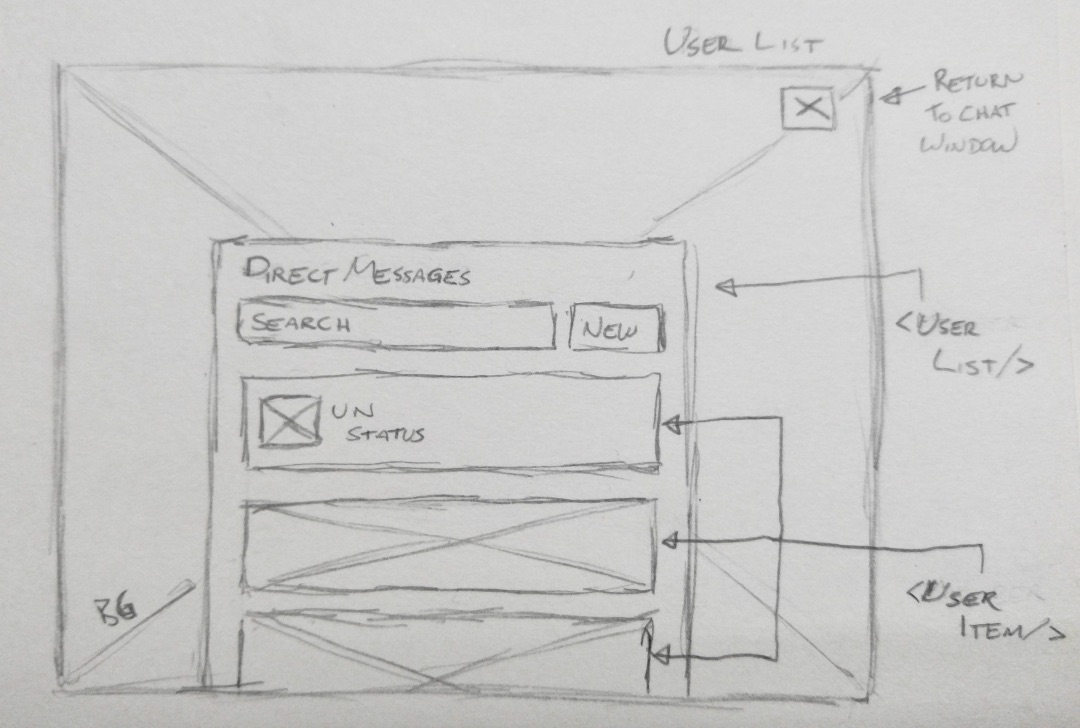 USER LIST
RETURN
TO CHAT
WINDOW
DIRECT MESSAGES
SEARCH
NEW
<USER
LIST/>
UN
STATUS
BG
<USER
ITEM/>